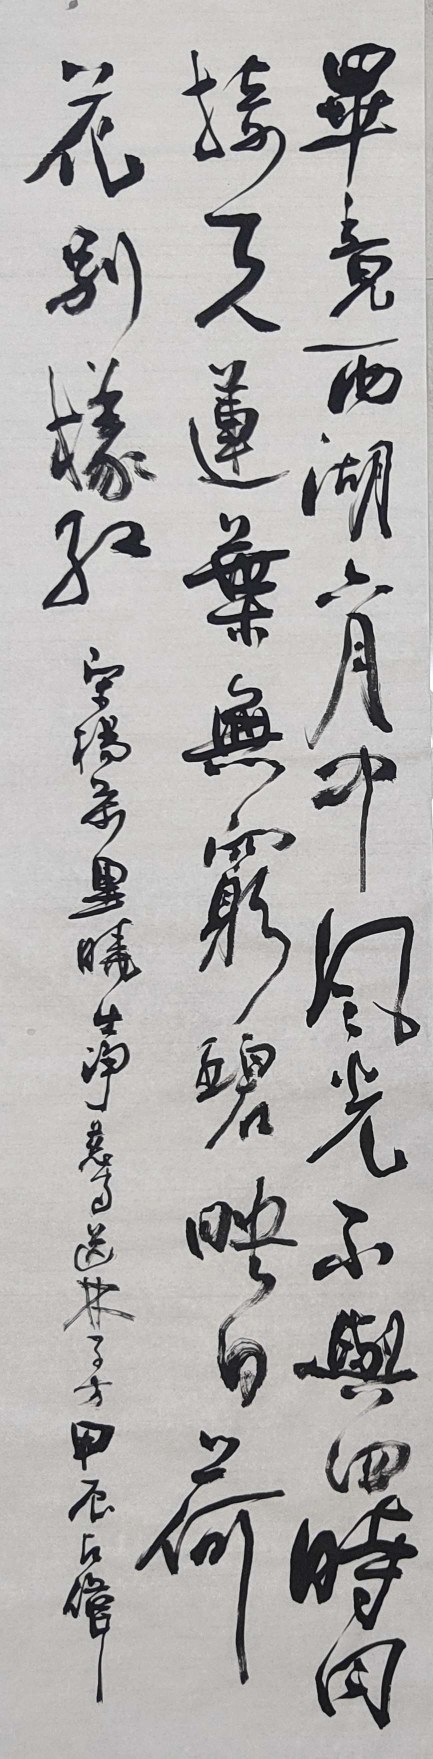 畢竟西湖六月中風光不與四時同
接天蓮葉無窮碧映日荷
花別樣紅
宋楊萬里曉出淨慈寺送林子方甲辰占偉